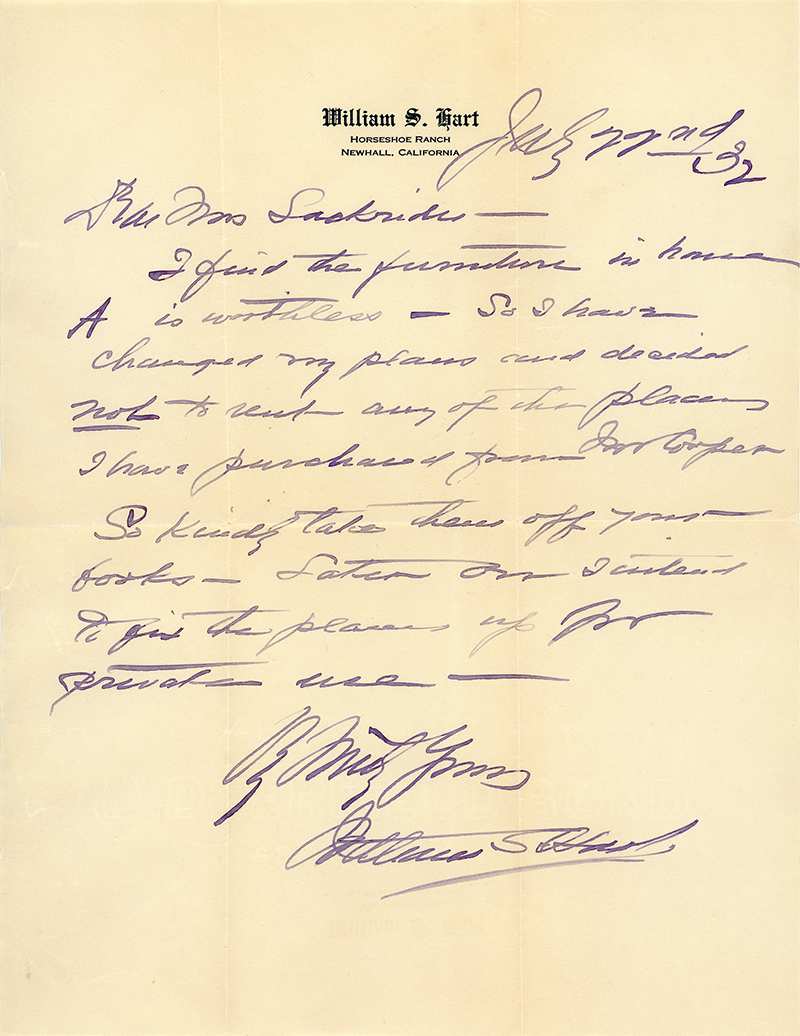 William S. Hart
Horseshoe Ranch
Newhall, California
July 22nd 32
Dear Mrs Lackrider —
I find the furniture in house
A is worthless — So I have
changed my plans and decided
not to rent any of the places
I have purchased from Mr Cooper
So kindly take them off your
books — Later on I intend
to fix the places up for
private use —
Very Truly Yours
William S Hart